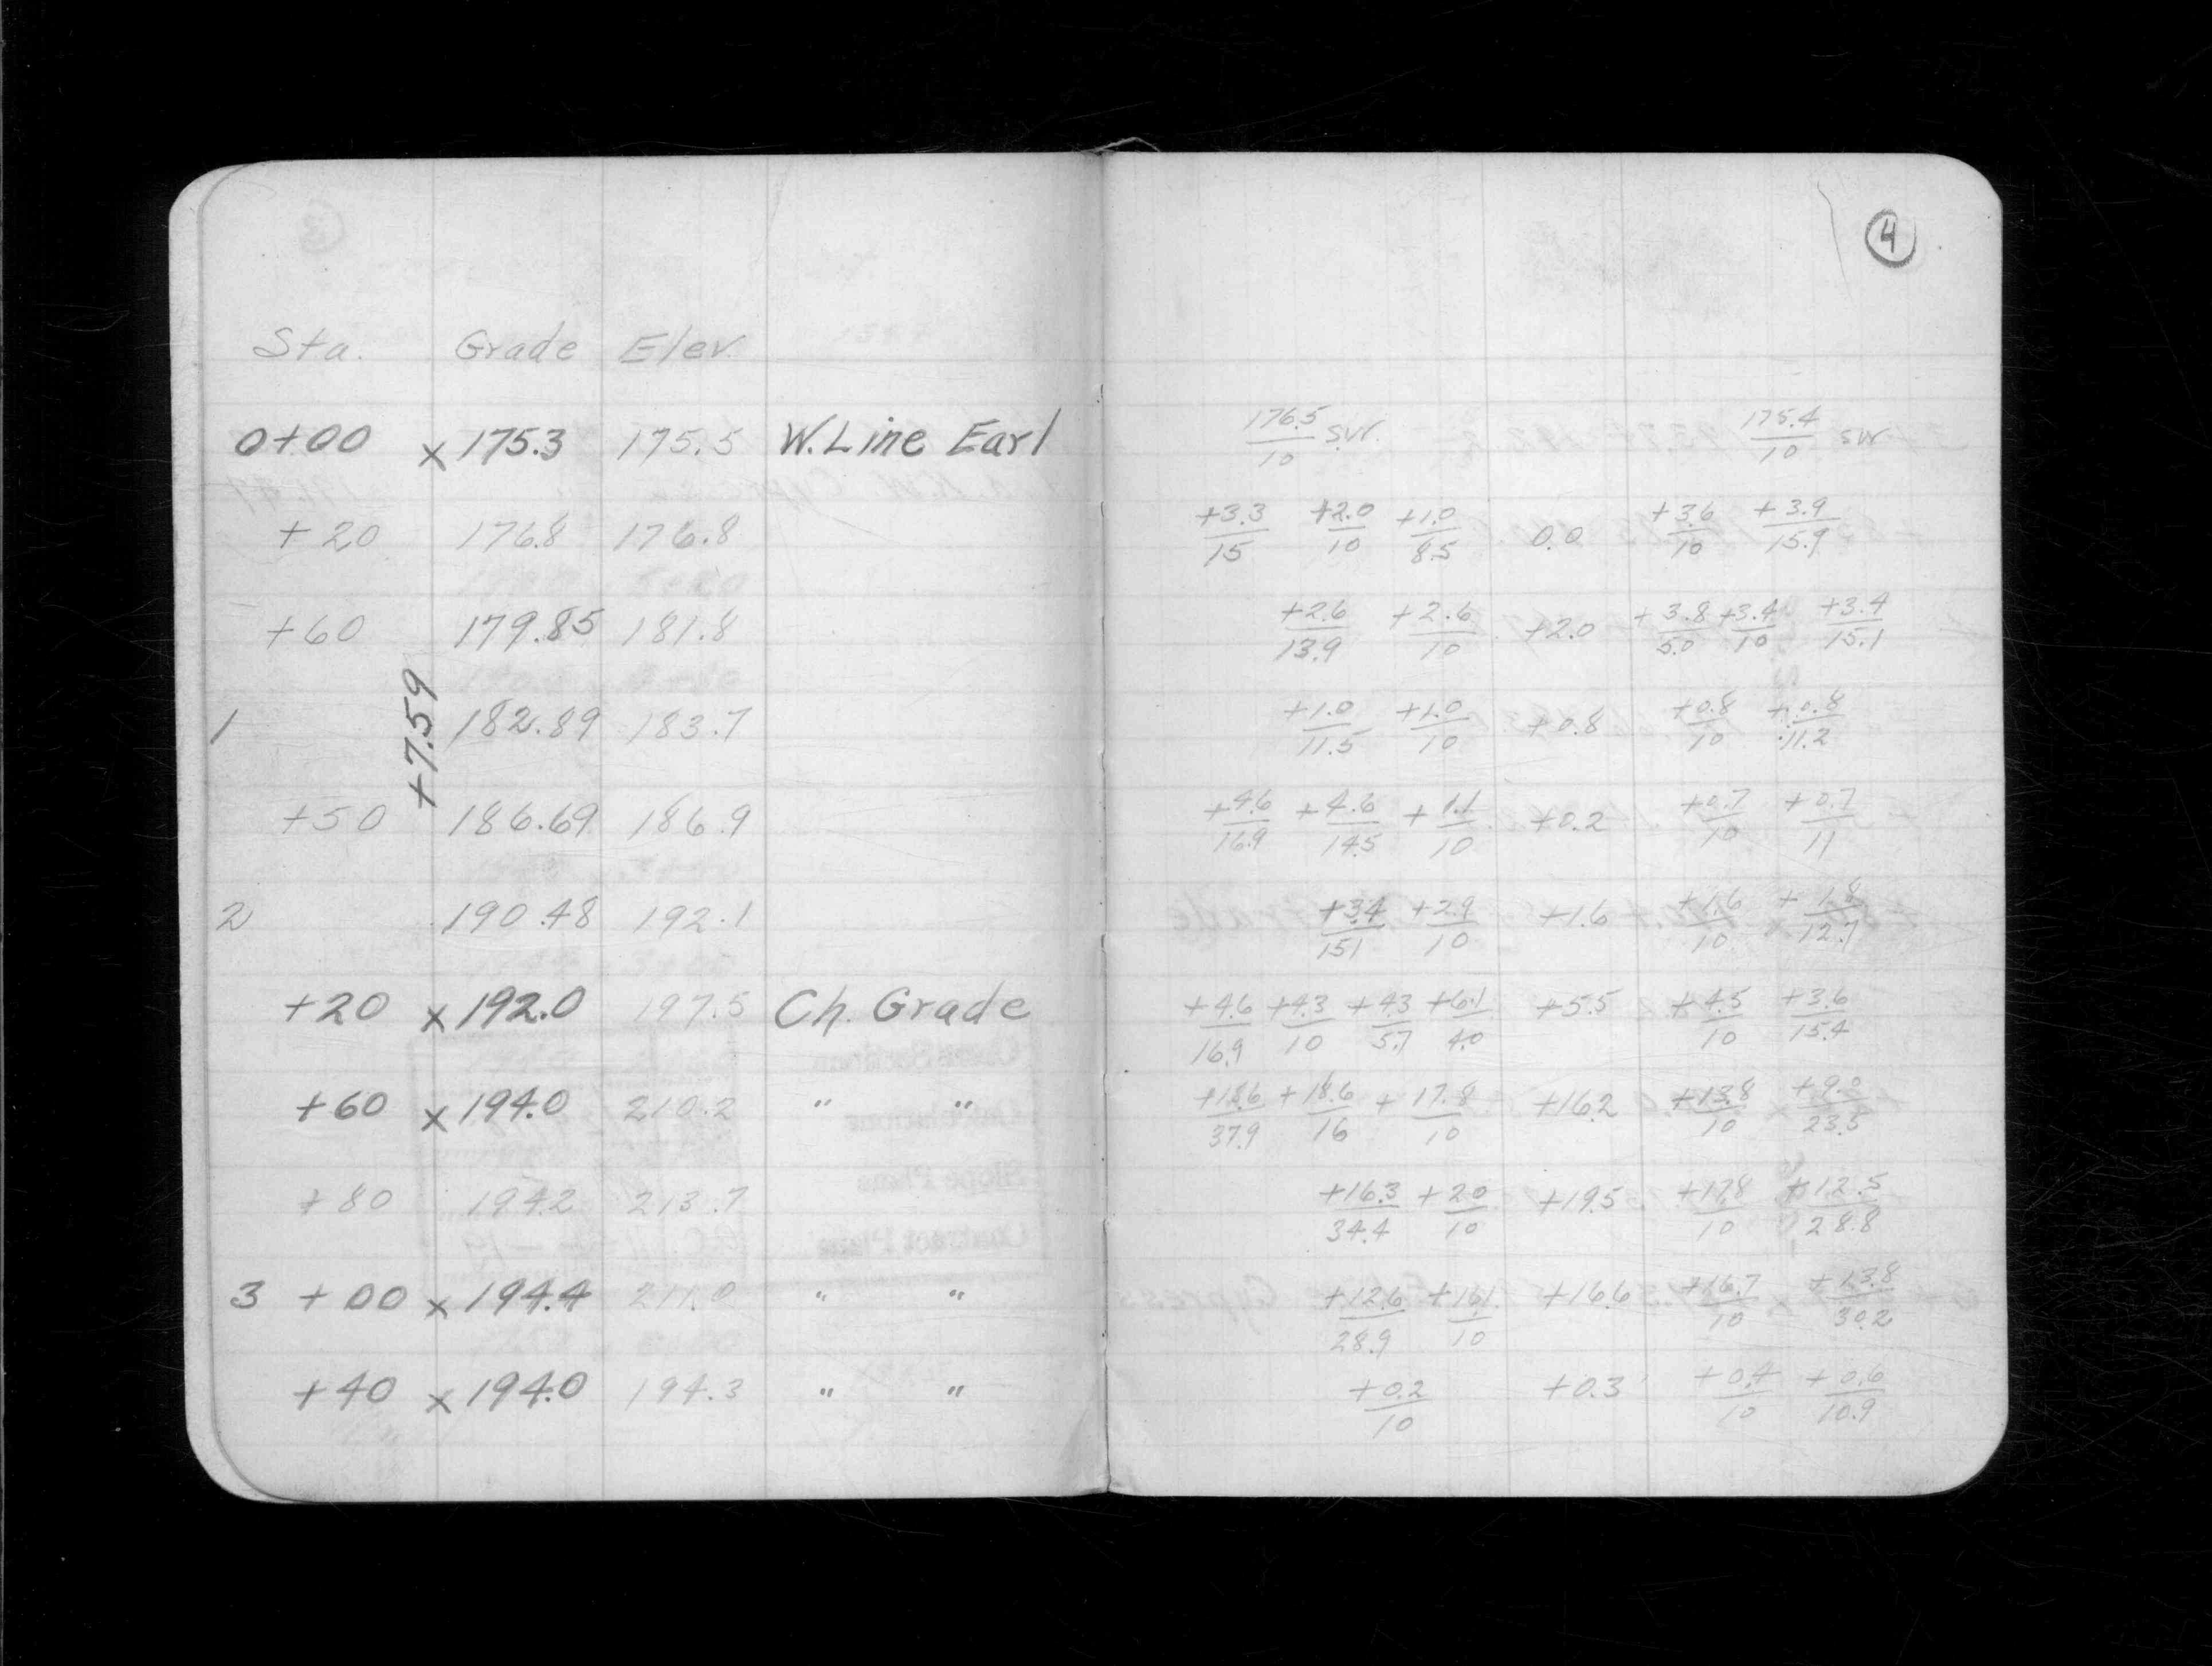 4
Sta. Grade Elev.
0+00 x 175.3 175.5 W. Line Earl 176.5/10 svr. 175.4/10 svr
+20 176.8 176.8 +3.3/15 +2.0/10 +1.0/8.5 0.0 +3.6/10 +3.9/15.9
+60 179.85 181.8 +2.6/13.9 +2.6/10 +2.0 +3.8/5.0 +3.4/10 +3.4/15.1
+7.59
1 182.89 183.7 +1.0/11.5 +1.0/10 +0.8 +0.8/10 +0.8/11.2
+50 186.69 186.9 +4.6/16.9 +4.6/14.5 +1.1/10 +0.2 +0.7/10 +0.7/11
2 190.48 192.1 +3.4/15.1 +2.9/10 +1.6 +1.6/10 +1.8/12.7
+20 x 192.0 197.5 Ch. Grade +4.6/16.9 +4.3/10 +4.3/5.7 +6.1/4.0 +5.5 +4.5/10 +3.6/15.4
+60 x 194.0 210.2 " " +18.6/37.9 +18.6/16 +17.8/10 +16.2 +13.8/10 +9.0/23.5
+80 194.2 213.7 +16.3/34.4 +20/10 +19.5 +17.8/10 +12.5/28.8
3 +00 x 194.4 211.0 " " +12.6/28.9 +16.1/10 +16.6 +16.7/10 +13.8/30.2
+40 x 194.0 194.3 " " +0.2/10 +0.3 +0.4/10 +0.6/10.9